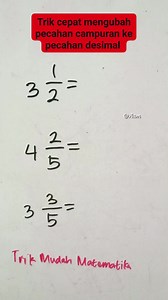 Trik cepat mengubah
pecahan campuran ke
pecahan desimal
3 1/2 =
4 2/5 =
3 3/5 =
Trik Mudah Matematika